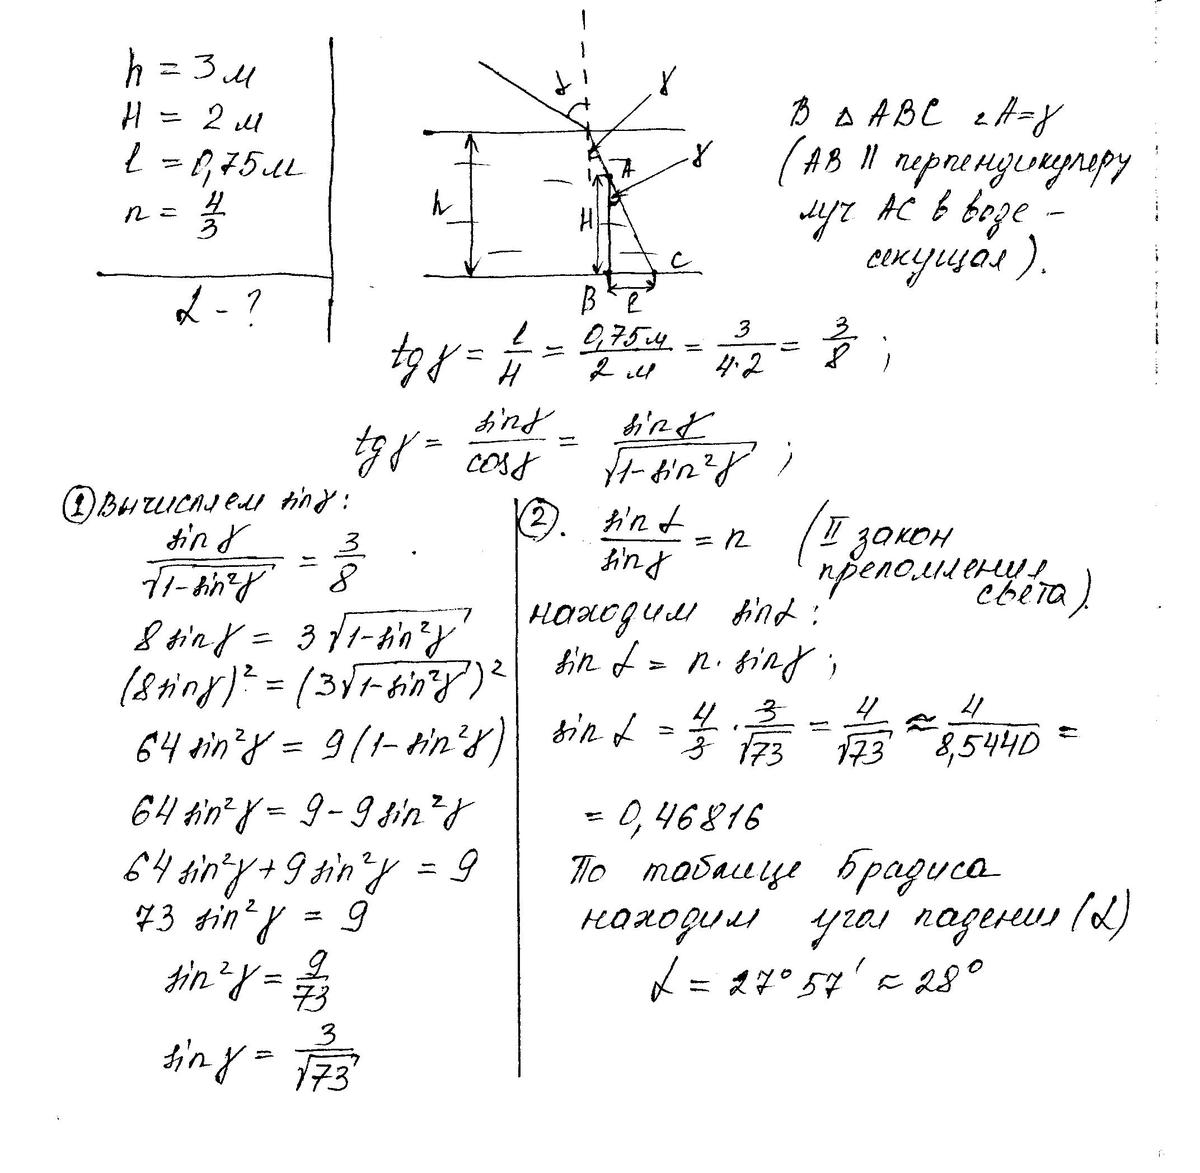 h = 3 м
H = 2 м
l = 0,75 м
n = 4/3
α - ?
α
γ
γ
A
h
H
C
B
l
В △ ABC ∠A=γ
(AB || перпендикуляру
луч AC в воде -
секущая).
tg γ = l/H = 0,75 м/2 м = 3/4·2 = 3/8 ;
tg γ = sin γ/cos γ = sin γ/√1-sin²γ ;
① Вычисляем sin γ:
sin γ/√1-sin²γ = 3/8
8 sin γ = 3√1-sin²γ
(8 sin γ)² = (3√1-sin²γ)²
64 sin²γ = 9(1-sin²γ)
64 sin²γ = 9 - 9 sin²γ
64 sin²γ + 9 sin²γ = 9
73 sin²γ = 9
sin²γ = 9/73
sin γ = 3/√73
②. sin α/sin γ = n (II закон
преломления
света).
находим sin α:
sin α = n · sin γ ;
sin α = 4/3 · 3/√73 = 4/√73 ≈ 4/8,5440 =
= 0,46816
По таблице Брадиса
находим угол падения (α)
α = 27° 57' ≈ 28°